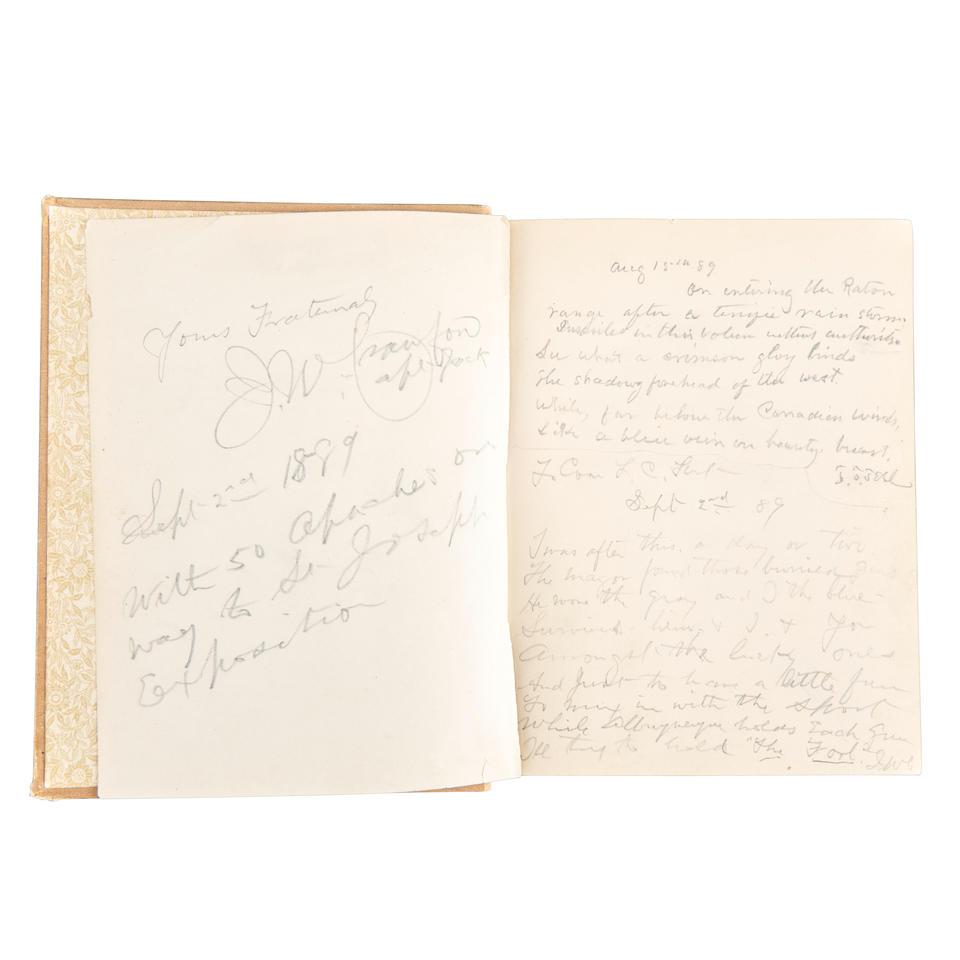 Yours Fraternally
J.W. Crawford
Capt Jack
Sept 2nd 1889
With 50 apaches on
way to St Joseph
Exposition
Aug 15th 89
On entering the Raton
range after a terrific rain storm
Inscribed in this volume without authority
See what a crimson glory binds
The shadowy forehead of the west.
While, far below the Canadian winds,
Like a blue vein on beauty's breast,
To Com L. C.
Sept 2nd 89
I was after this. a day or two
The mayor found those
He wore the gray and I the blue
Survived him & I & You
Amongst the lucky ones
And Just to have a little fun
To mix in with the Sport
While Albuquerque holds Each Gun
to hold "The Fort."
JWC